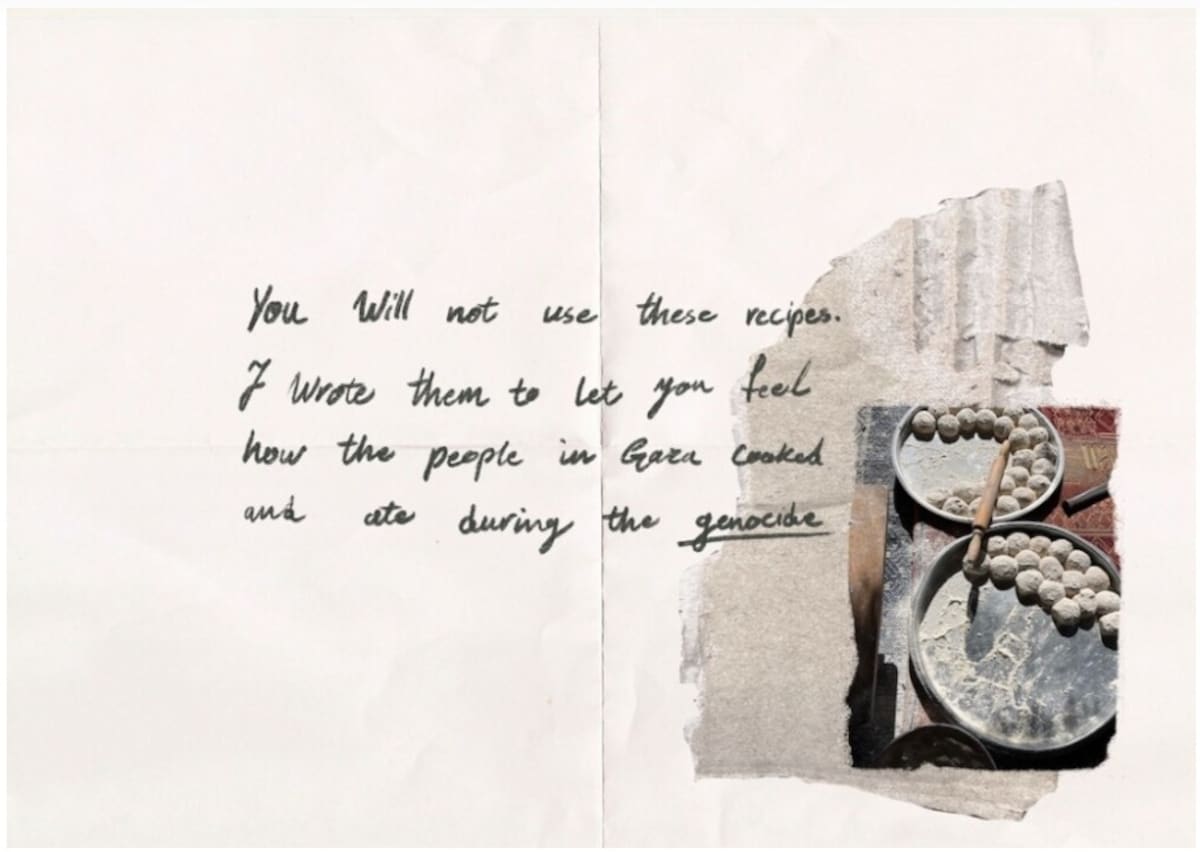 You Will not use these recipes.
I Wrote them to let you feel
how the people in Gaza cooked
and ate during the genocide